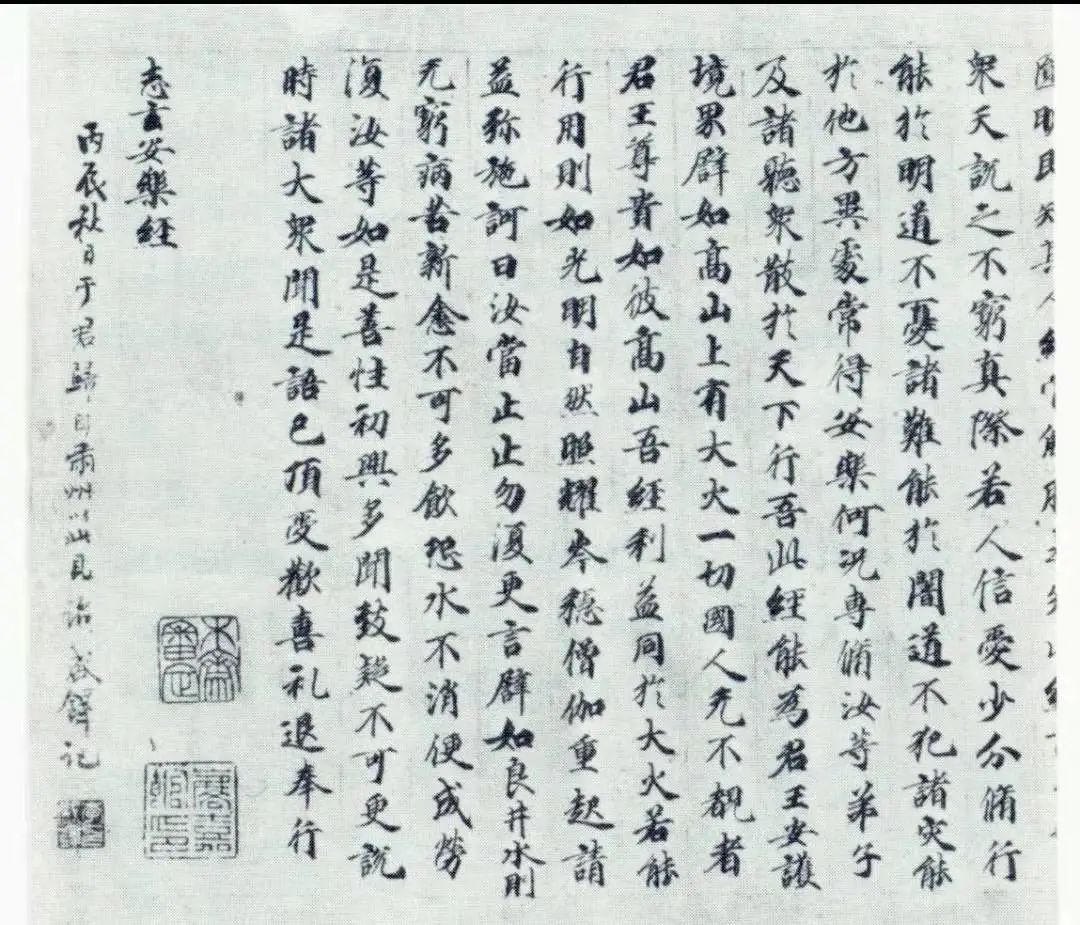 衆天說之不窮真際若人信愛少分脩行
能於明道不憂諸難能於闇道不犯諸灾能
於他方異處常得安樂何況専脩汝等弟子
及諸聽衆散於天下行吾此經能為君王安護
境界辟如高山上有大火一切國人无不覩者
君王尊貴如彼高山吾經利益同於大火若能
行用則如光明自然照耀岑穩僧伽重起請
益弥施訶曰汝當止止勿復更言辟如良井水則
无窮病苦新愈不可多飲恐水不消便成勞
復汝等如是善性初興多聞致疑不可更說
時諸大衆聞是語已頂受歡喜礼退奉行
志玄安樂經
丙辰秋日于君歸自肅州以此見詒 盛鐸記